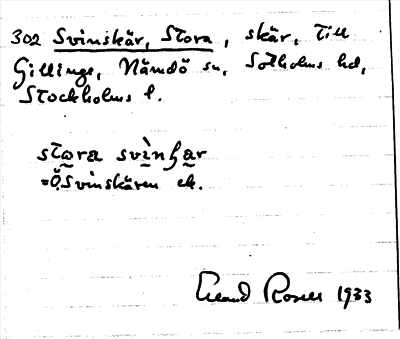 302 Svinskär, Stora, skär, Till
Gillinge, Nämdö sn, Sotholms hd,
Stockholms l.
stora svìnʃar
=Ö. Svinskären ek.
Erland Rosell 1933